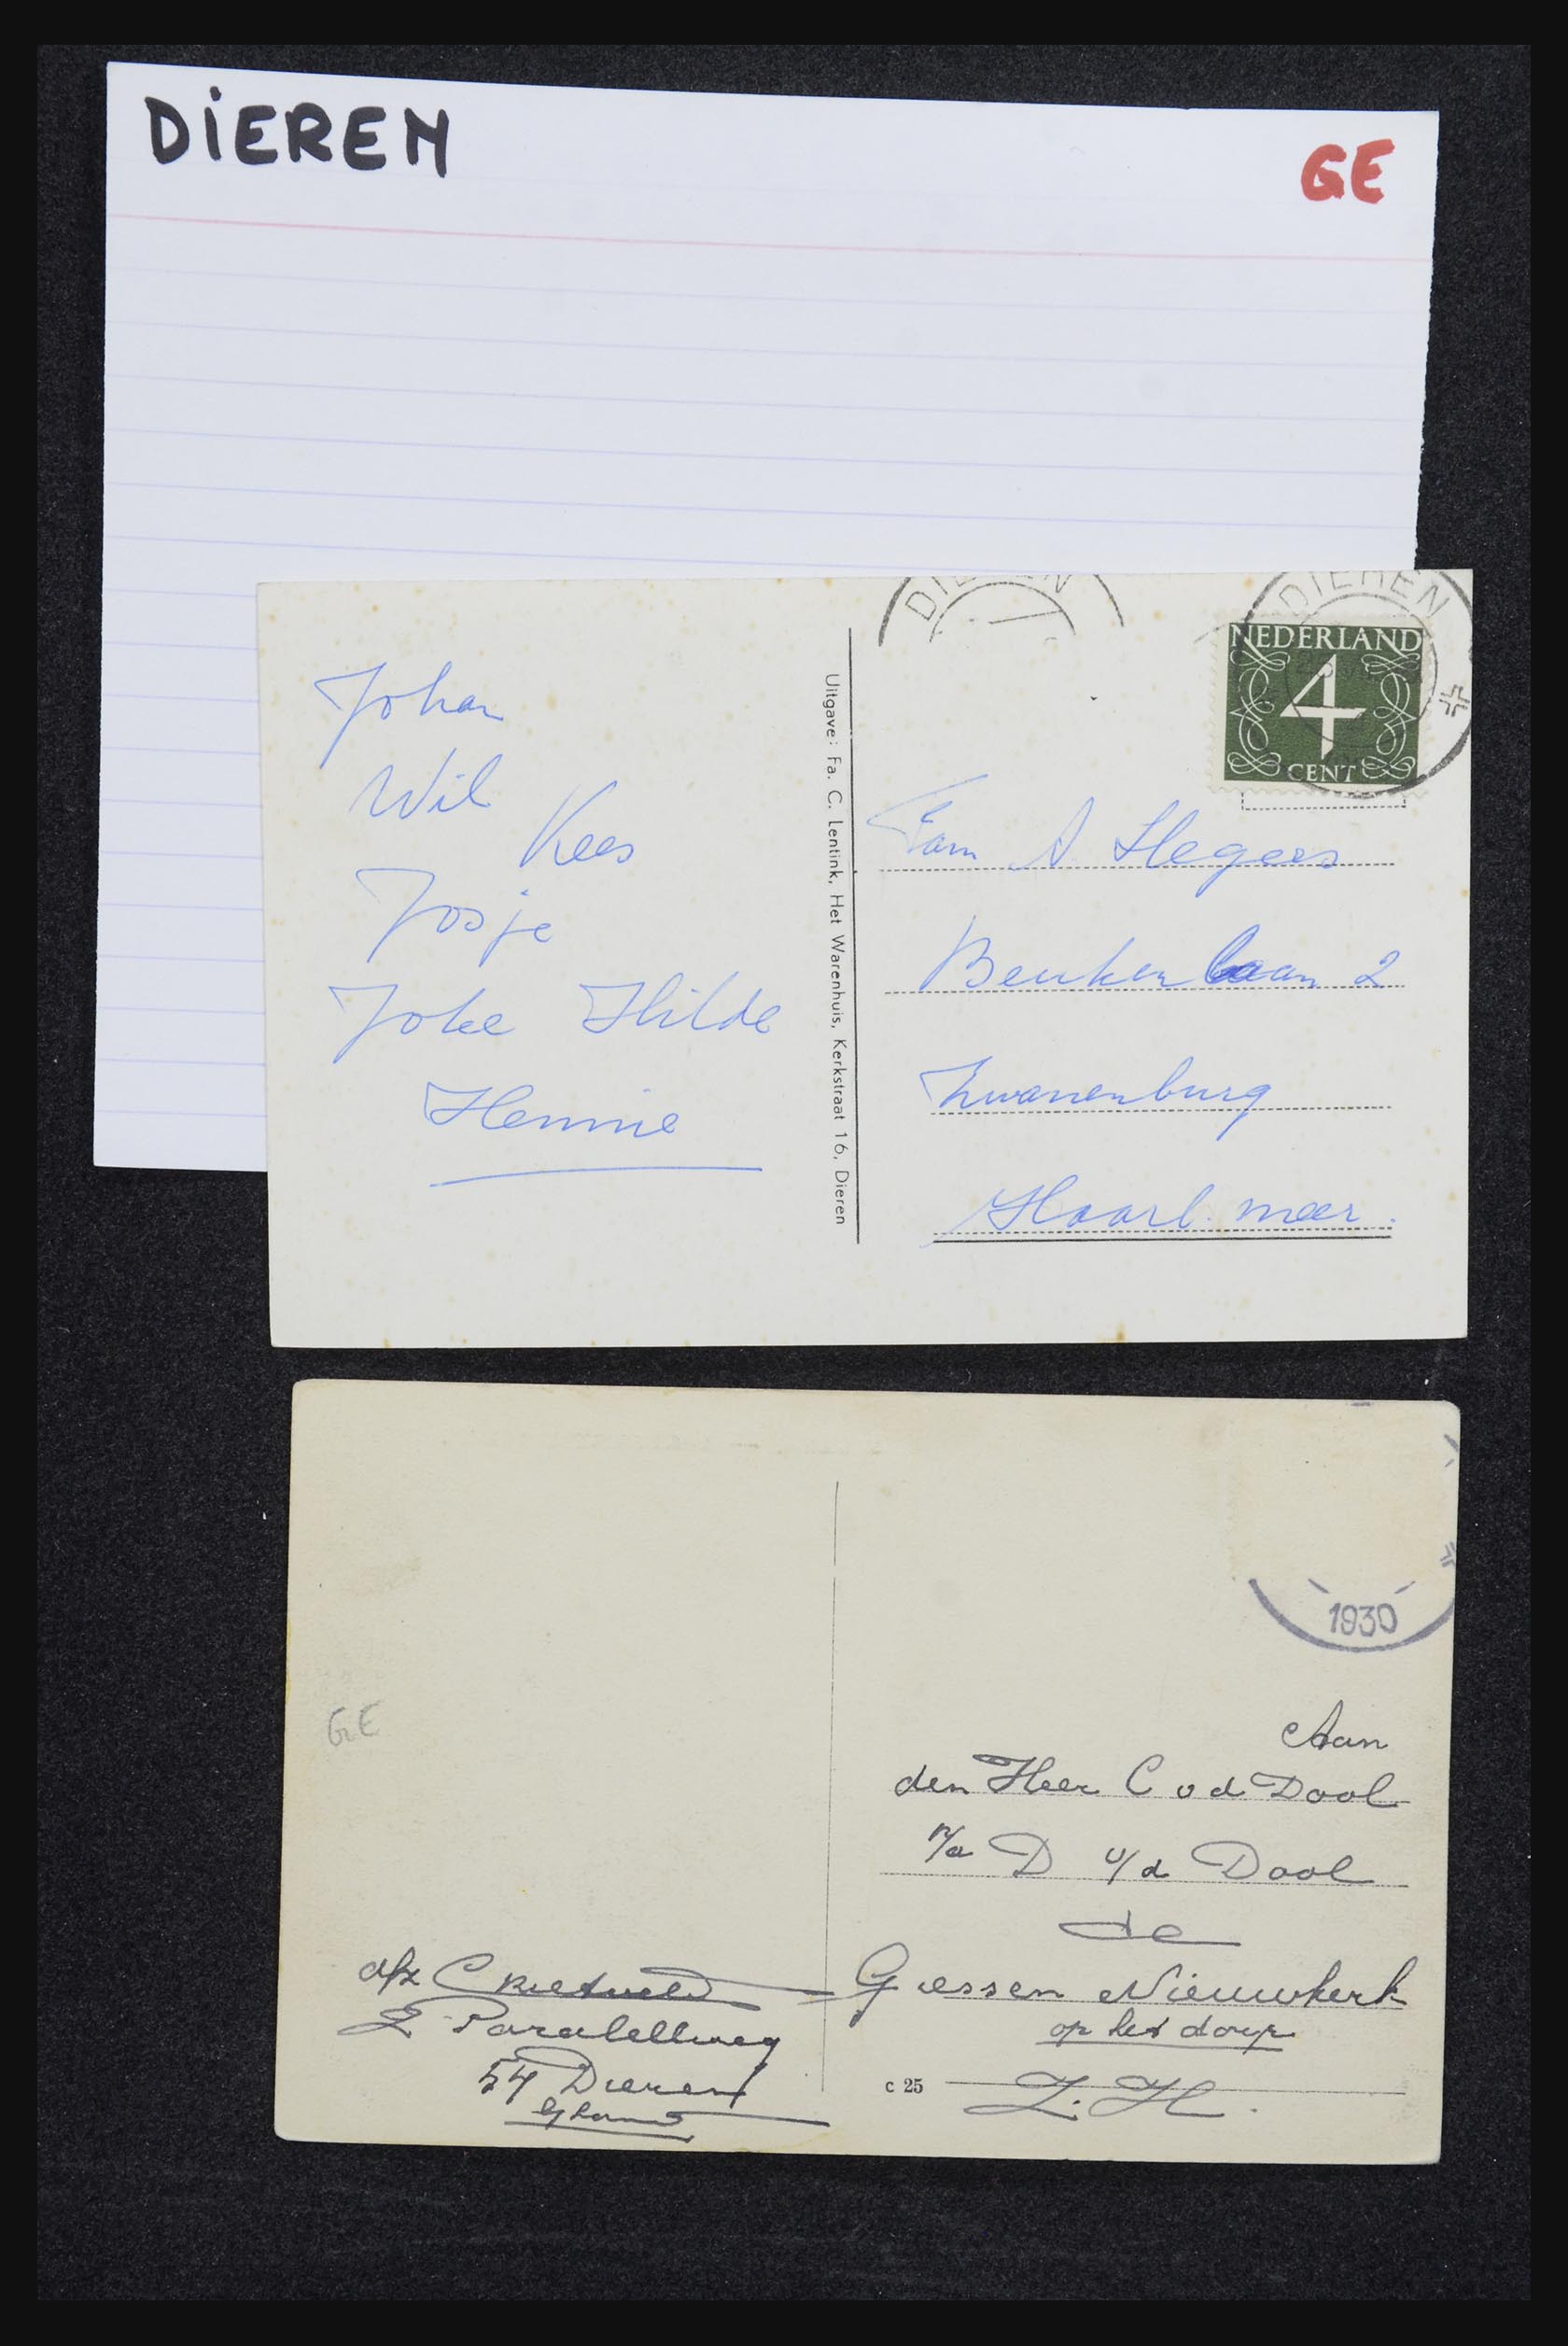 DiEREN
GE
DIEREN
NEDERLAND
4
CENT
Johan
Wil
Kees
Josje
Joke Hilde
Hennie
Uitgave: Fa. C. Lentink, Het Warenhuis, Kerkstraat 16, Dieren
Fam A. Hegers
Beukenlaan 2
Zwanenburg
Haarl. meer.
1930
GE
Aan
den Heer C v d Dool
p/a D v/d Dool
de
Giessen Nieuwkerk
op het dorp
Z. H.
c 25
afz C
Paralellweg
54 Dieren